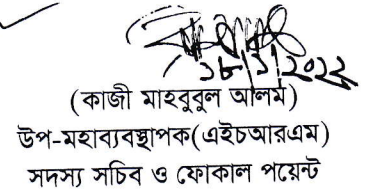 ১৮/১/২০২২
(কাজী মাহবুবুল আলম)
উপ-মহাব্যবস্থাপক(এইচআরএম)
সদস্য সচিব ও ফোকাল পয়েন্ট